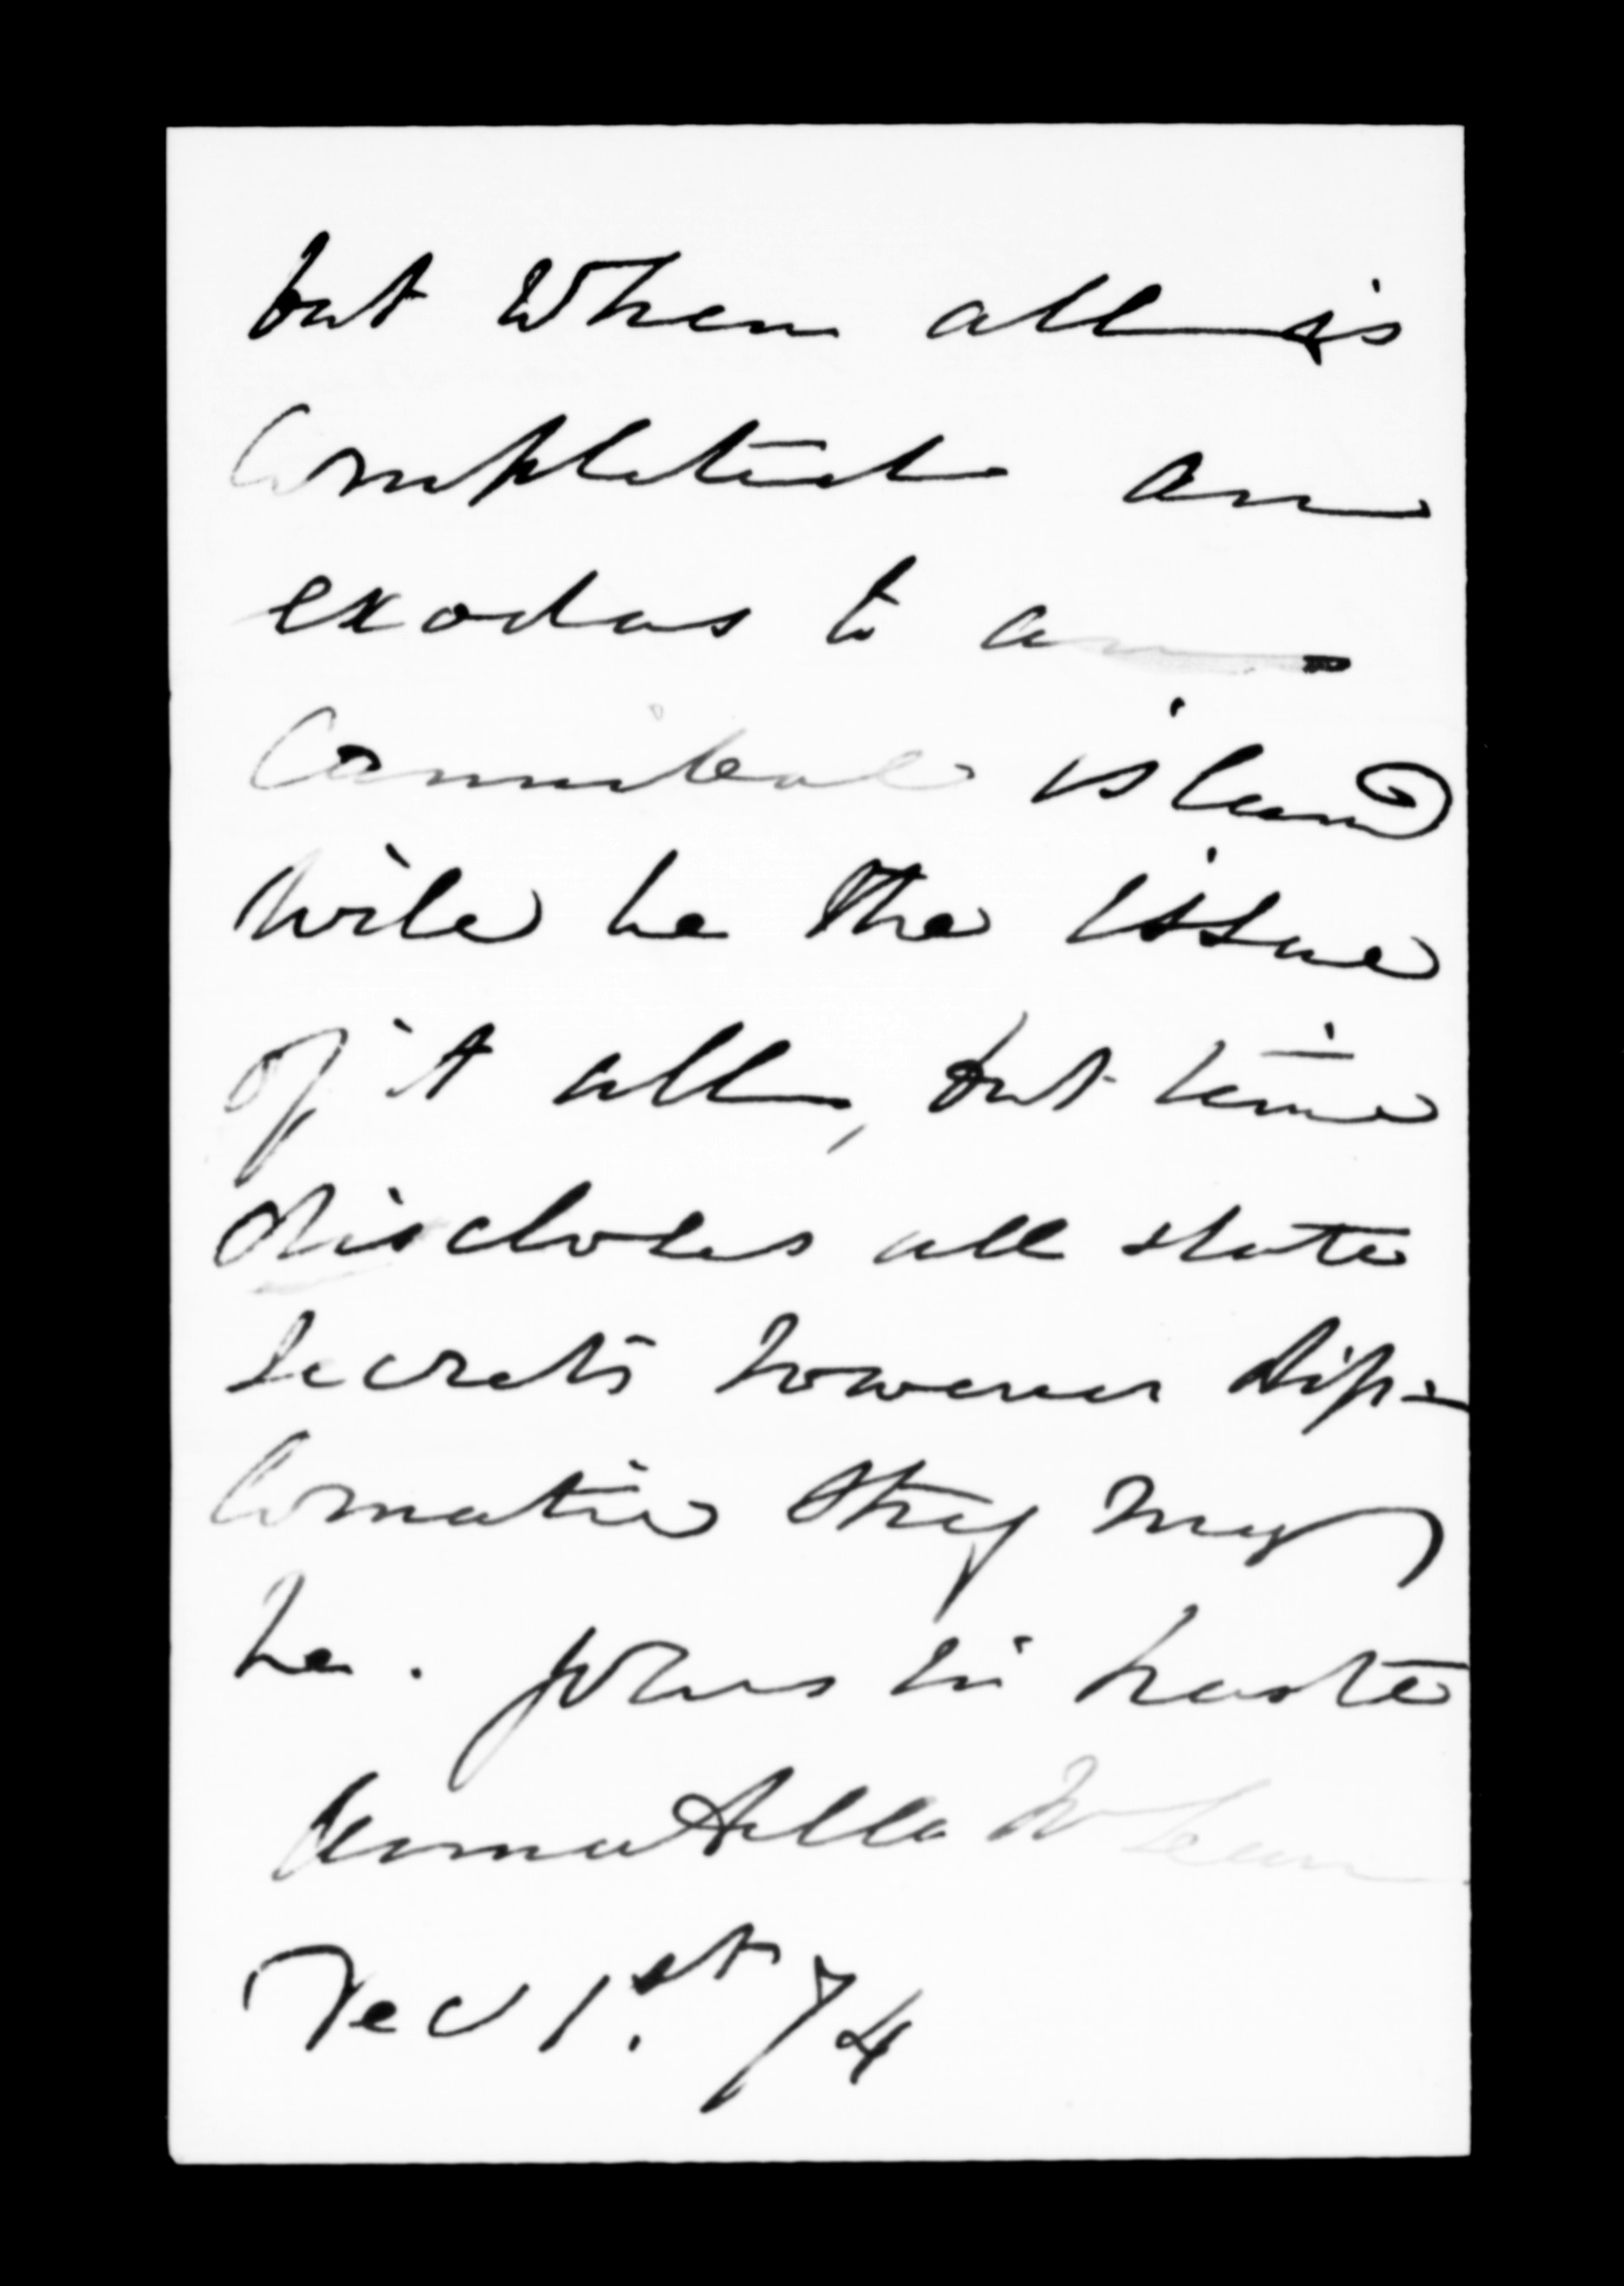 but when all is
completed an
exodus to a
Cannibal island
will be the issue
of it all, but time
discloses all state
secrets however dip-
lomatic they may
be. yours in haste
Annabella McLean
Dec 1st. 74